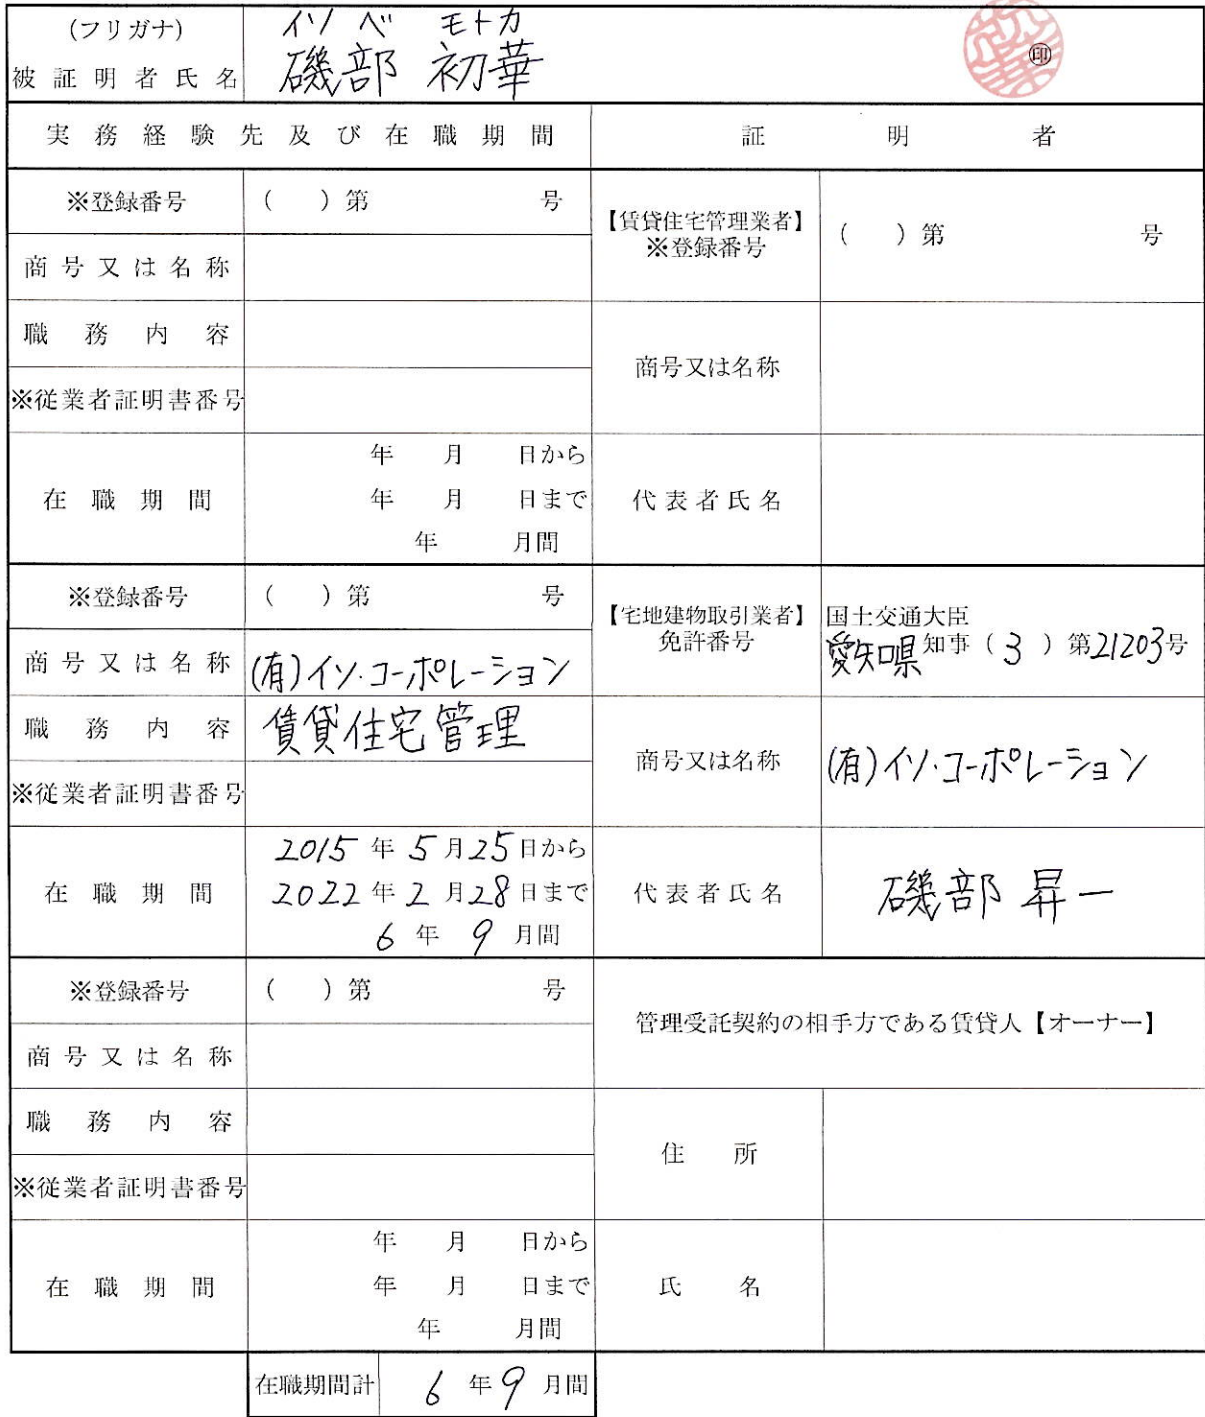 (フリガナ) イソベ モトカ
被証明者氏名 磯部 初華 ㊞
実務経験先及び在職期間 証明者
※登録番号 ( )第 号
【賃貸住宅管理業者】
※登録番号 ( )第 号
商号又は名称
職務内容
商号又は名称
※従業者証明書番号
在職期間
年 月 日から
年 月 日まで
年 月間
代表者氏名
※登録番号 ( )第 号
【宅地建物取引業者】
免許番号
国土交通大臣
愛知県知事(3)第21203号
商号又は名称 (有)イソ・コーポレーション
職務内容 賃貸住宅管理
商号又は名称 (有)イソ・コーポレーション
※従業者証明書番号
在職期間
2015年5月25日から
2022年2月28日まで
6年9月間
代表者氏名 磯部 昇一
※登録番号 ( )第 号
管理受託契約の相手方である賃貸人【オーナー】
商号又は名称
職務内容
住所
※従業者証明書番号
在職期間
年 月 日から
年 月 日まで
年 月間
氏名
在職期間計 6年9月間